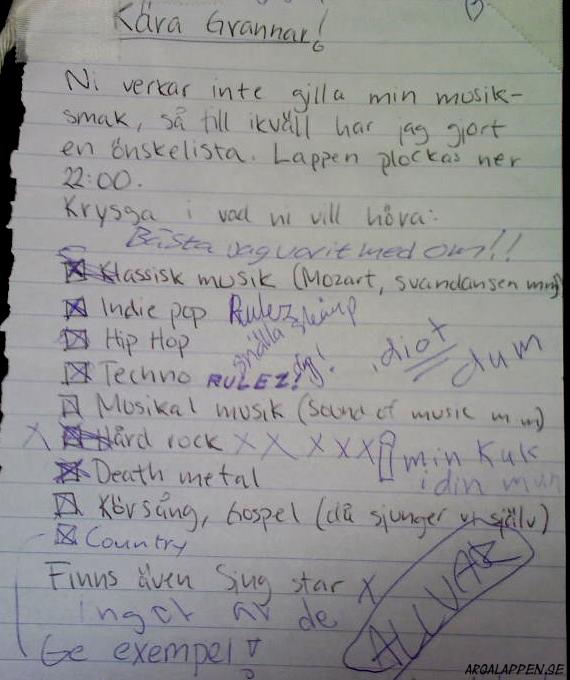 Kära Grannar!
Ni verkar inte gilla min musik-
smak, så till ikväll har jag gjort
en önskelista. Lappen plockas ner
22:00.
Kryssa i vad ni vill höra:
Bästa jag varit med om!!
Klassisk musik (Mozart, svandansen mm)
Indie pop Rulez
Hip Hop snälla
Techno RULEZ! idiot dum
Musikal musik (Sound of music m m)
X Hård rock X X X X X min Kuk
Death metal i din mun
Körsång, Gospel (då sjunger vi själv)
Country
Finns även Sing star X
Inget av de
Ge exempel!
ALLVAR
ARGALAPPEN.SE